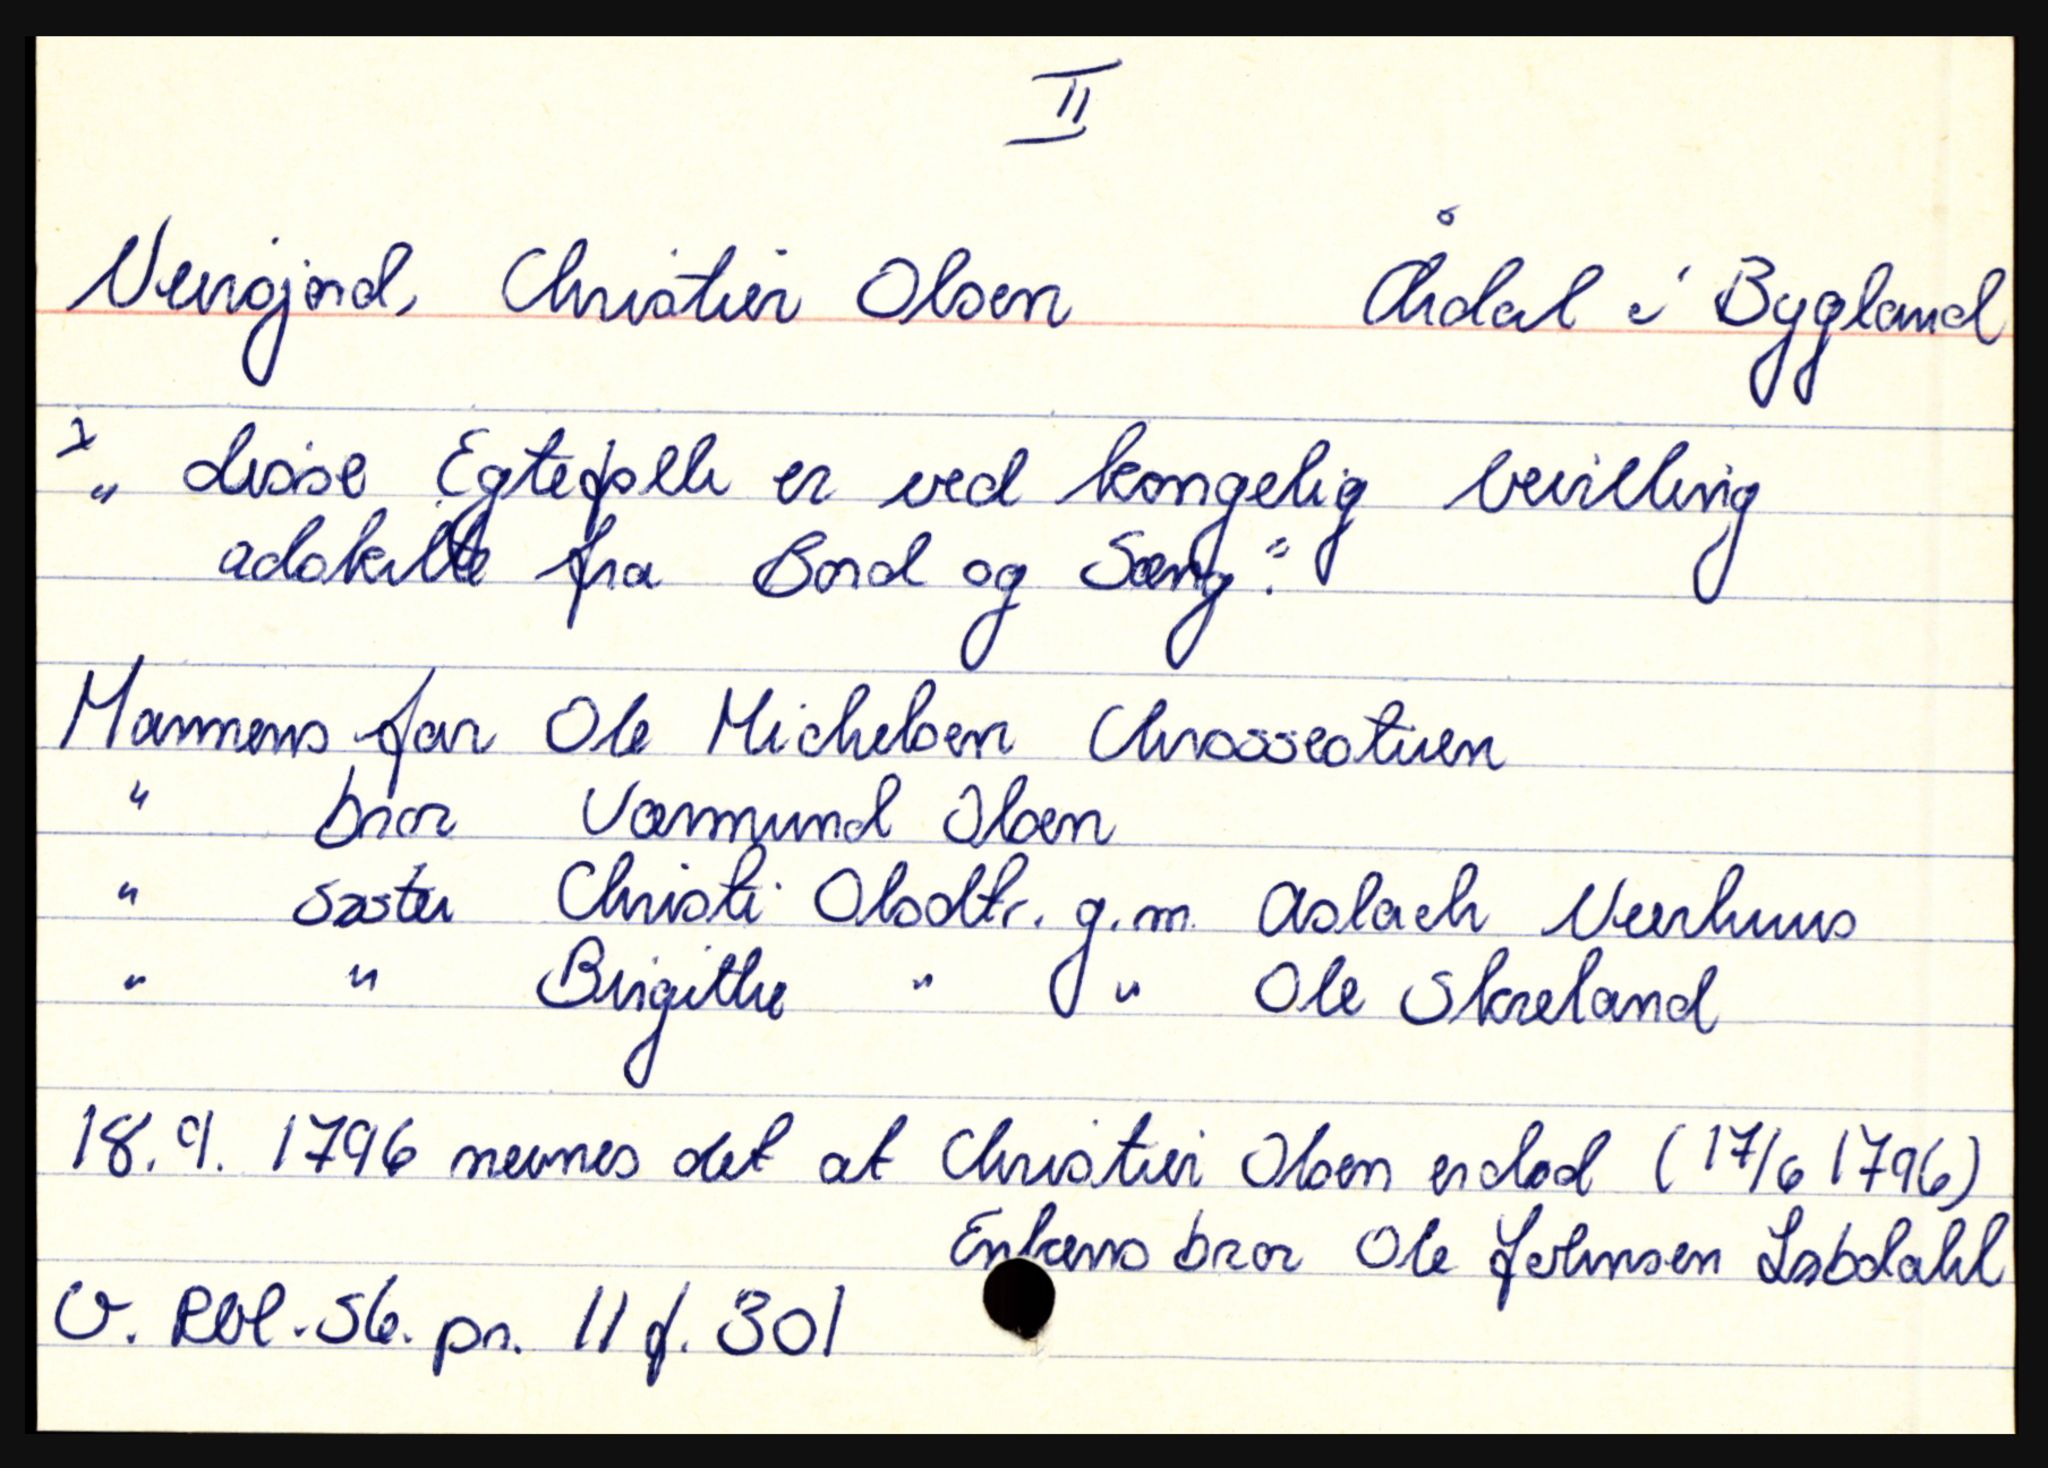 II
Neusgjord, Christier Olsen Årdal i Bygland
x
„ disse Egtefolk er ved kongelig bevilling
adskilte fra Bord og Sæng."
Mannens far Ole Michelsen Chrosseotuen
" bror Vormund Olsen
" søster Christi Olsdtr. g.m. Aslach Neerhuus
" " Birgithe " " Ole Skreland
18.9. 1796 nevnes det at Christier Olsen er død (17/6 1796)
Enkens bror Ole Johnsen Løbdahl
V. Rbl. S6. pr. 11 f. 301